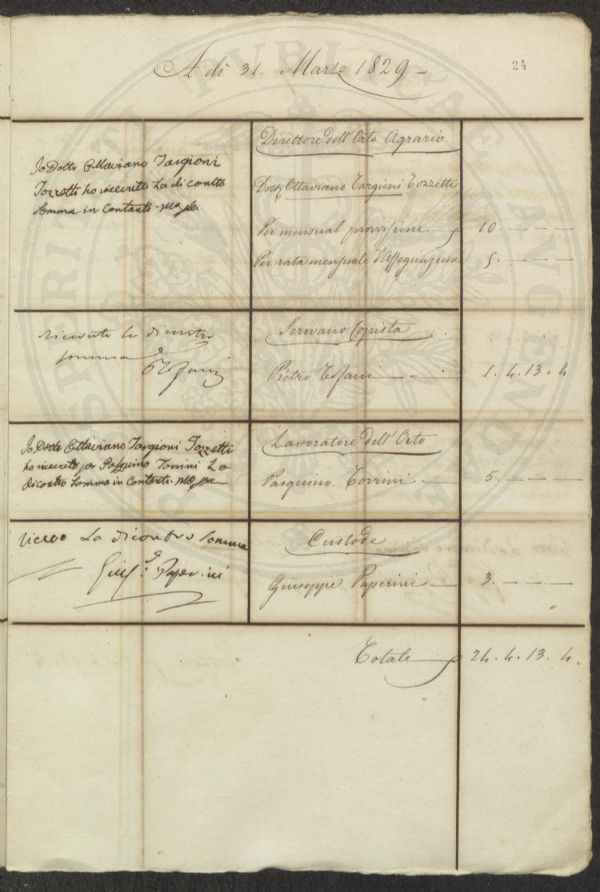 A di 31. Marzo 1829
24
Direttore dell'Orto Agrario
Io Dotto Ottaviano Targioni
Tozzetti ho ricevuto La di contro
Somma in Contanti
Dott. Ottaviano Targioni Tozzetti
Per mensual provvisione 10. — — —
Per rata mensuale d'Assegnazione 5. — — —
Scrivano Copista
ricevuto la di contro
somma
Pietro Tofani 1. 4. 13. 4
Lavoratore dell'Orto
Io Dotto Ottaviano Targioni Tozzetti
ho ricevuto per Pasquino Torrini La
di contro Somma in Contanti
Pasquino Torrini 5. — — —
Custode
ricevo La di contro Somma
Giuse. Paperini
Giuseppe Paperini 3. — — —
Totale 24. 4. 13. 4.